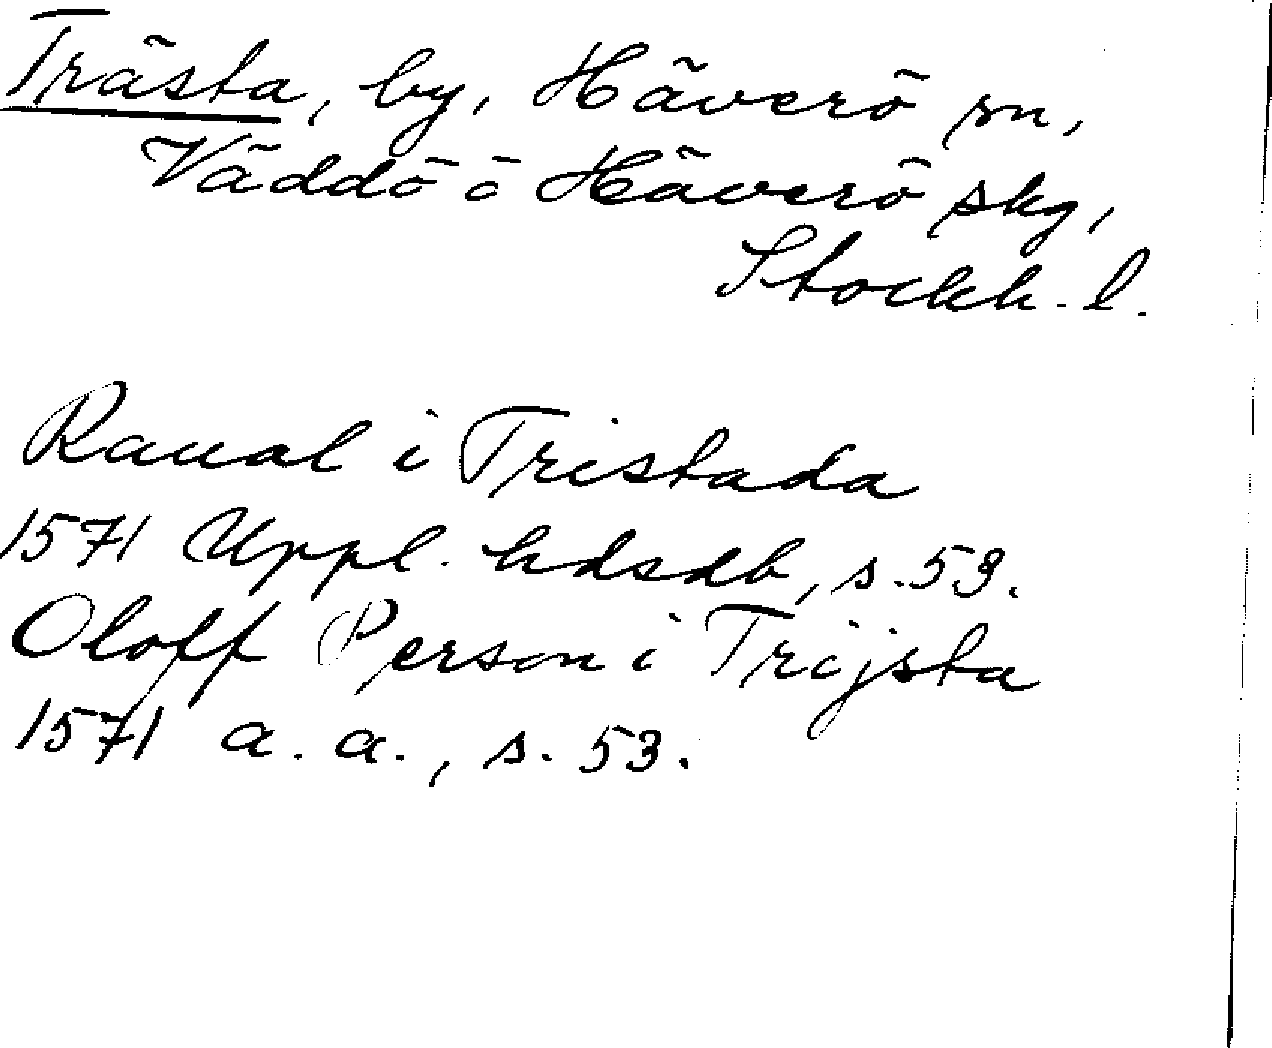 Trästa, by, Häverö sn,
Väddö o Häverö skg,
Stockh. l.
Raual i Tristada
1571 Uppl. hdsdb, s. 53.
Oloff Person i Trijsta
1571 a. a., s. 53.